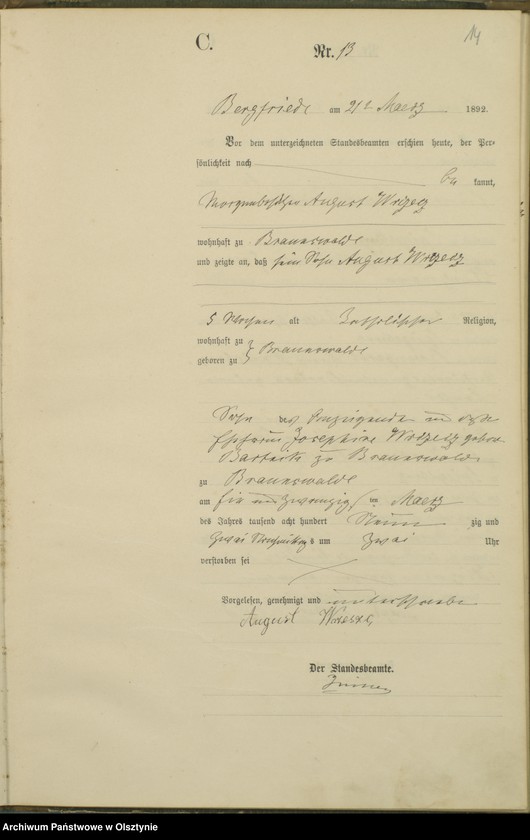 14
C.
Nr. 13
Bergfriede am 21t Maerz 1892.
Vor dem unterzeichneten Standesbeamten erschien heute, der Per-
sönlichkeit nach
be kannt,
August Wrzesz
wohnhaft zu Braunswalde
und zeigte an, daß sein Sohn August Wrzesz
5 Wochen alt Katholischer Religion,
wohnhaft zu
geboren zu } Braunswalde
Sohn des Anzeigenden und der
Ehefrau Josephine Wrzesz geboren
zu Braunswalde
zu Braunswalde
am ein und zwanzig ten Maerz
des Jahres tausend acht hundert Neun zig und
zwei Vormittags um zwei Uhr
verstorben sei
Vorgelesen, genehmigt und unterschrieben
August
Der Standesbeamte.
Archiwum Państwowe w Olsztynie